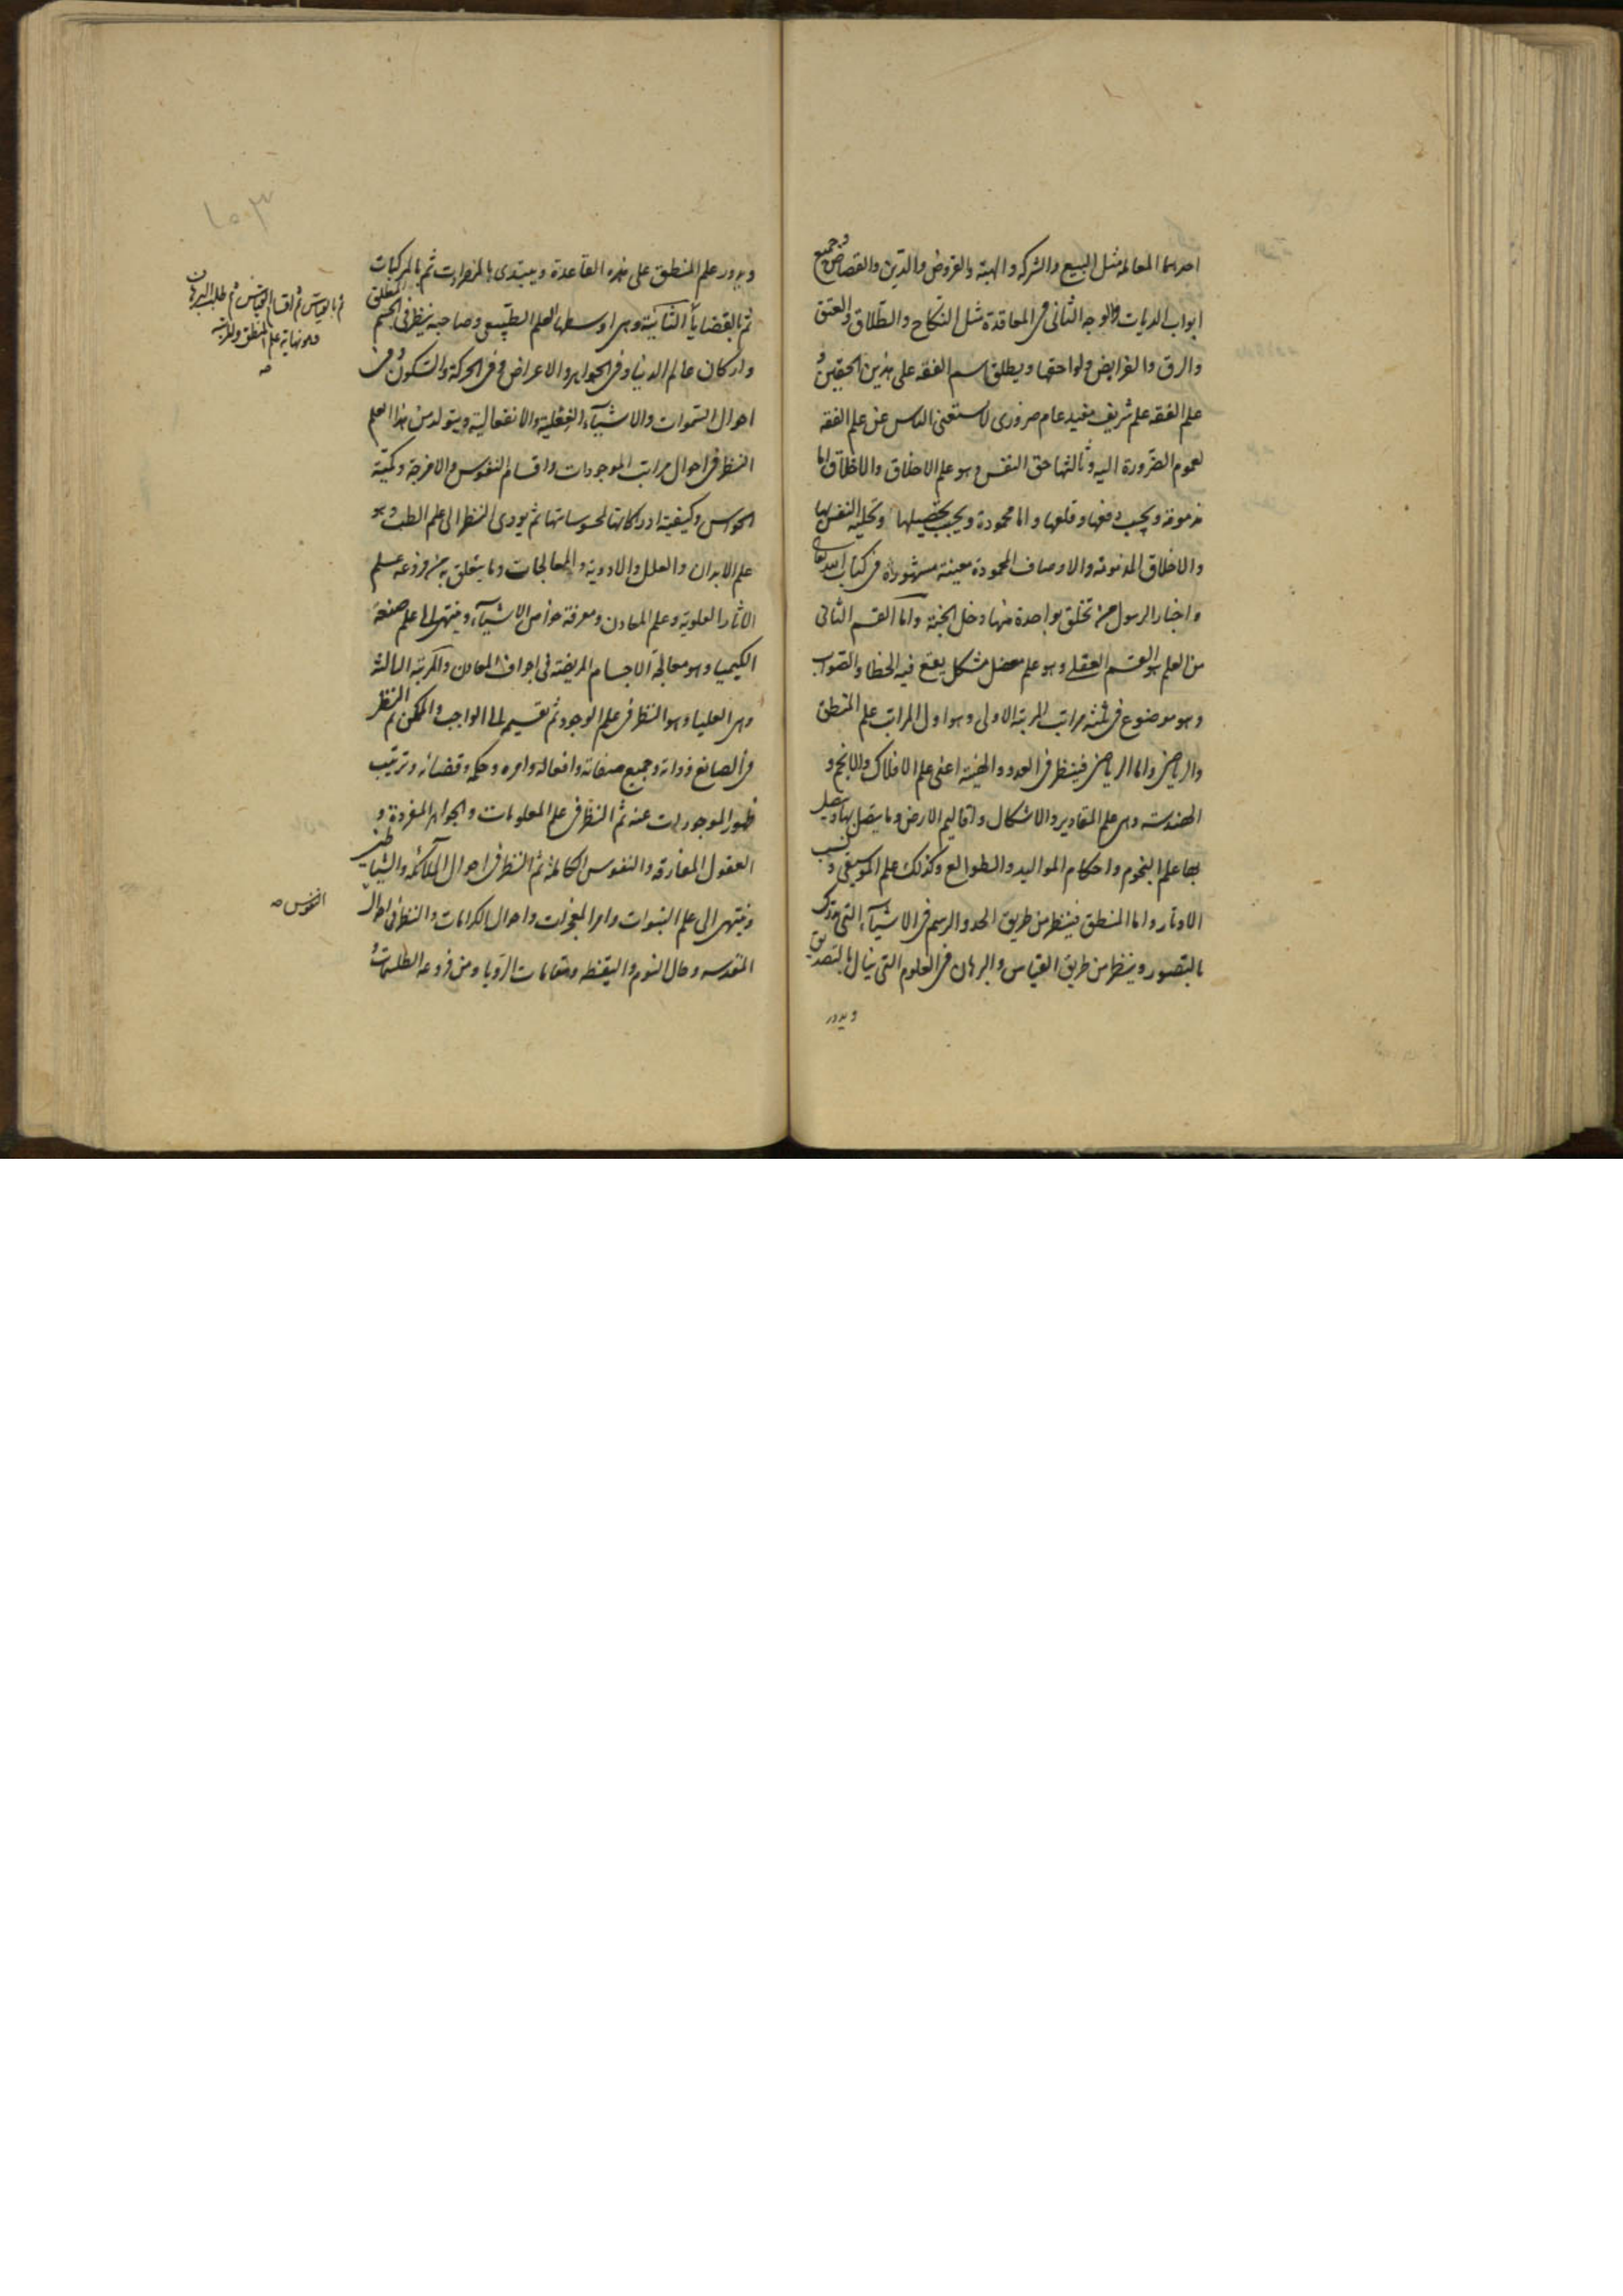 احدهما المعاملة مثل البيع والشركه والهبة والقروض والدّين والقصاص وجميع
ابواب الديات والوجه الثانى فى المعاقدة مثل النكاح والطلاق والعتق
والرق والفرايض ولواحقها ويطلق اسم الفقه على هذين الحقين و
علم الفقه علم شريف مفيد عام ضرورى لا يستغنى الناس عن علم الفقه
لعموم الضّرورة اليه وثالثها حق النفس وهو علم الاخلاق والاخلاق اما
مذمومة ويجب دفعها وقلعها واما محمودة ويجب تحصيلها وتحلية النفس بها
والاخلاق المذمومة والاوصاف المحمودة معينة مشهورة فى كتاب الله تعالى
واخبار الرسول من تخلق بواحدة منها دخل الجنة وامّا القسم الثانى
من العلم هو القسم العقلى وهو علم معضل مشكل يقع فيه الخطا والصّواب
وهو موضوع فى ثلثة مراتب المرتبة الاولى وهو اول المراتب علم المنطق
والرياضى واما الرياضى فينظر فى العدد والهيئة اعنى علم الافلاك والانجم و
الهندسة وهى علم المقادير والاشكال واقاليم الارض وما يتصل بها ويتصل
بها علم النجوم واحكام المواليد والطوالع وكذلك علم الموسيقى ونسب
الاوتار واما المنطق فينظر من طريق الحد والرسم فى الاشيآء التى تدرك
بالتصور وينظر من طريق القياس والبرهان فى العلوم التى ينال بالتصديق
ويدور
١٠٣
ويدور علم المنطق على هذه القاعدة ويبتدى بالمفردات ثم بالمركبات
ثم بالقضايا الثانية وهى اوسطها العلم الطبيعى وصاحبه ينظر فى الجسم المطلق
واركان عالم الدنيا وفى الجواهر والاعراض وفى الحركة والسّكون وفى
احوال السّموات والاشيآء الفعلية والانفعالية ويتولد من هذا العلم
النظر فى احوال مراتب الموجودات واقسام النفوس والامزجة وكميّة
الحواس وكيفية ادراكاتها لمحسوساتها ثم يودى النظر الى علم الطب وهو
علم الابدان والعلل والادوية والمعالجات وما يتعلق به من فروعه علم
الاثار العلوية وعلم المعادن ومعرفة خواص الاشيآء وينتهى الى علم صنعة
الكيميا وهو معالجة الاجسام المريضة فى اجواف المعادن والمرتبة الثالثة
وهى العليا وهو النظر فى علم الوجود ثم تقسيمه الى الواجب والممكن ثم النظر
فى الصانع وذاته وجميع صفاته وافعاله وامره وحكمه وقضائه وترتيب
ظهور الموجودات عنه ثم النظر فى علم المعلومات والجواهر المفردة و
العقول المفارقه والنفوس الكاملة ثم النظر فى احوال الملآئكه والشياطين
وينتهى الى علم النبوات وامر المعجزات واحوال الكرامات والنظر فى احوال
المقدسه وحال النوم واليقظه ومقامات الرّويا ومن فروعه الطلسمات و
ثم بالقياس ثم اقسام القياس ثم طلب البرهان
وهو نهاية علم المنطق والمرتبة
صه
النفوس صه